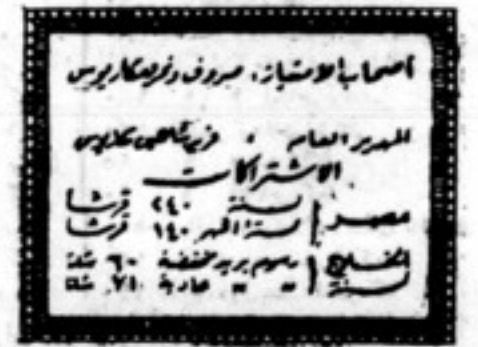 أصحاب الامتياز: صروف ونمر ومكاريوس
المدير العام : مكاريوس
الاشتراكات
مصر { لسنة ٢٤٠ قرشا
ستة اشهر ١٤٠ قرشا
الخارج { برسوم بريد مخفضة ٦٠ شلنا
لسنة " " عادية ٧١ شلنا